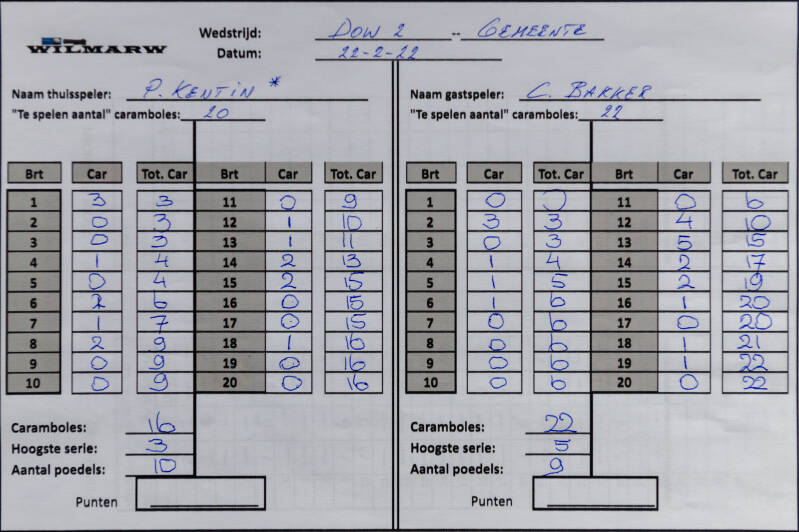 WILMARW
Wedstrijd: DOW 2 -- GEMEENTE
Datum: 22-2-22
Naam thuisspeler: P. KENTIN *
"Te spelen aantal" caramboles: 20
Brt Car Tot. Car Brt Car Tot. Car
1 3 3 11 0 9
2 0 3 12 1 10
3 0 3 13 1 11
4 1 4 14 2 13
5 0 4 15 2 15
6 2 6 16 0 15
7 1 7 17 0 15
8 2 9 18 1 16
9 0 9 19 0 16
10 0 9 20 0 16
Caramboles: 16
Hoogste serie: 3
Aantal poedels: 10
Punten
Naam gastspeler: C. BAKKER
"Te spelen aantal" caramboles: 22
Brt Car Tot. Car Brt Car Tot. Car
1 0 0 11 0 6
2 3 3 12 4 10
3 0 3 13 5 15
4 1 4 14 2 17
5 1 5 15 2 19
6 1 6 16 1 20
7 0 6 17 0 20
8 0 6 18 1 21
9 0 6 19 1 22
10 0 6 20 0 22
Caramboles: 22
Hoogste serie: 5
Aantal poedels: 9
Punten